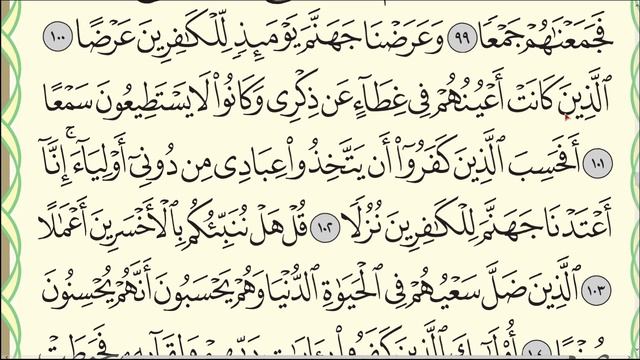 فَجَمَعْنَٰهُمْ جَمْعًا ٩٩ وَعَرَضْنَا جَهَنَّمَ يَوْمَئِذٍ لِّلْكَٰفِرِينَ عَرْضًا ١٠٠
ٱلَّذِينَ كَانَتْ أَعْيُنُهُمْ فِى غِطَآءٍ عَن ذِكْرِى وَكَانُوا۟ لَا يَسْتَطِيعُونَ سَمْعًا
١٠١ أَفَحَسِبَ ٱلَّذِينَ كَفَرُوٓا۟ أَن يَتَّخِذُوا۟ عِبَادِى مِن دُونِىٓ أَوْلِيَآءَ ۚ إِنَّآ
أَعْتَدْنَا جَهَنَّمَ لِلْكَٰفِرِينَ نُزُلًا ١٠٢ قُلْ هَلْ نُنَبِّئُكُم بِٱلْأَخْسَرِينَ أَعْمَٰلًا
١٠٣ ٱلَّذِينَ ضَلَّ سَعْيُهُمْ فِى ٱلْحَيَوٰةِ ٱلدُّنْيَا وَهُمْ يَحْسَبُونَ أَنَّهُمْ يُحْسِنُونَ
صُنْعًا ١٠٤ أُو۟لَٰٓئِكَ ٱلَّذِينَ كَفَرُوا۟ بِـَٔايَٰتِ رَبِّهِمْ وَلِقَآئِهِۦ فَحَبِطَتْ